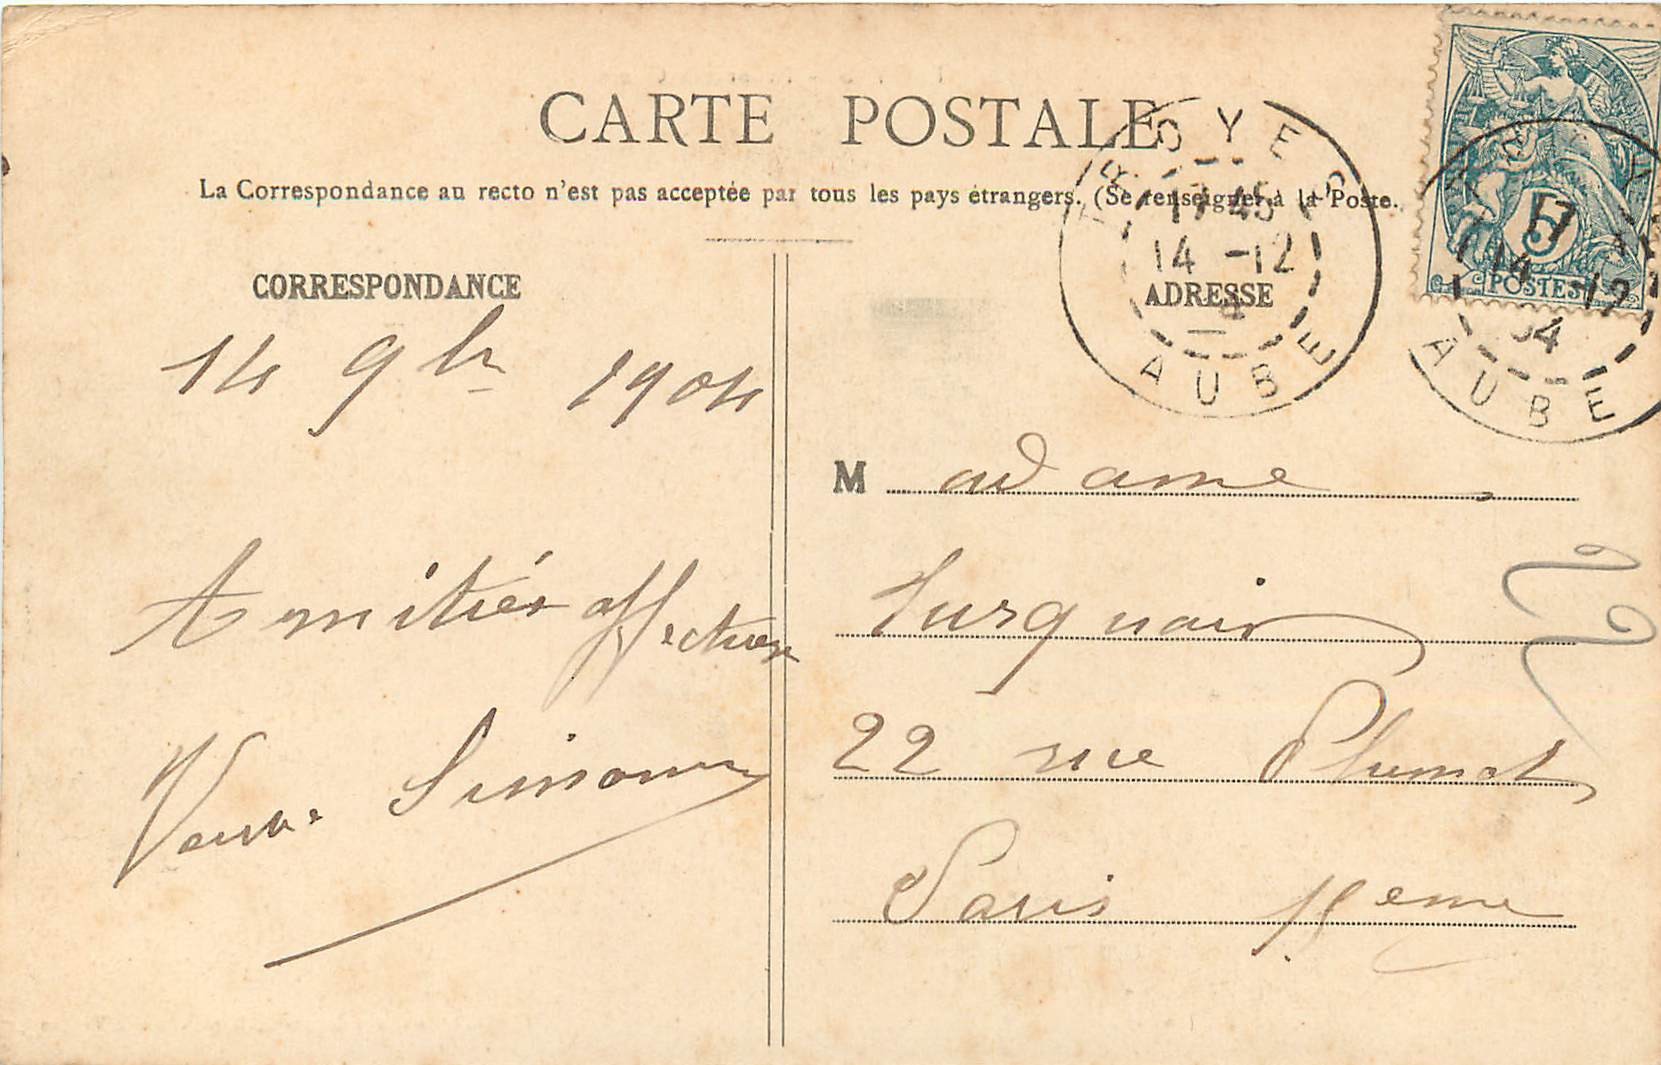 CARTE POSTALE
La Correspondance au recto n'est pas acceptée par tous les pays étrangers. (Se renseigner à la Poste.
CORRESPONDANCE
14 9bre 1904
Amitiés affectueuses
Veuve Simonin
TROYES
17 45
14 -12
AUBE
ADRESSE
17
14 -12
04
AUBE
5
POSTES
Madame
Turquair
22 rue Plumet
Paris 15eme
22